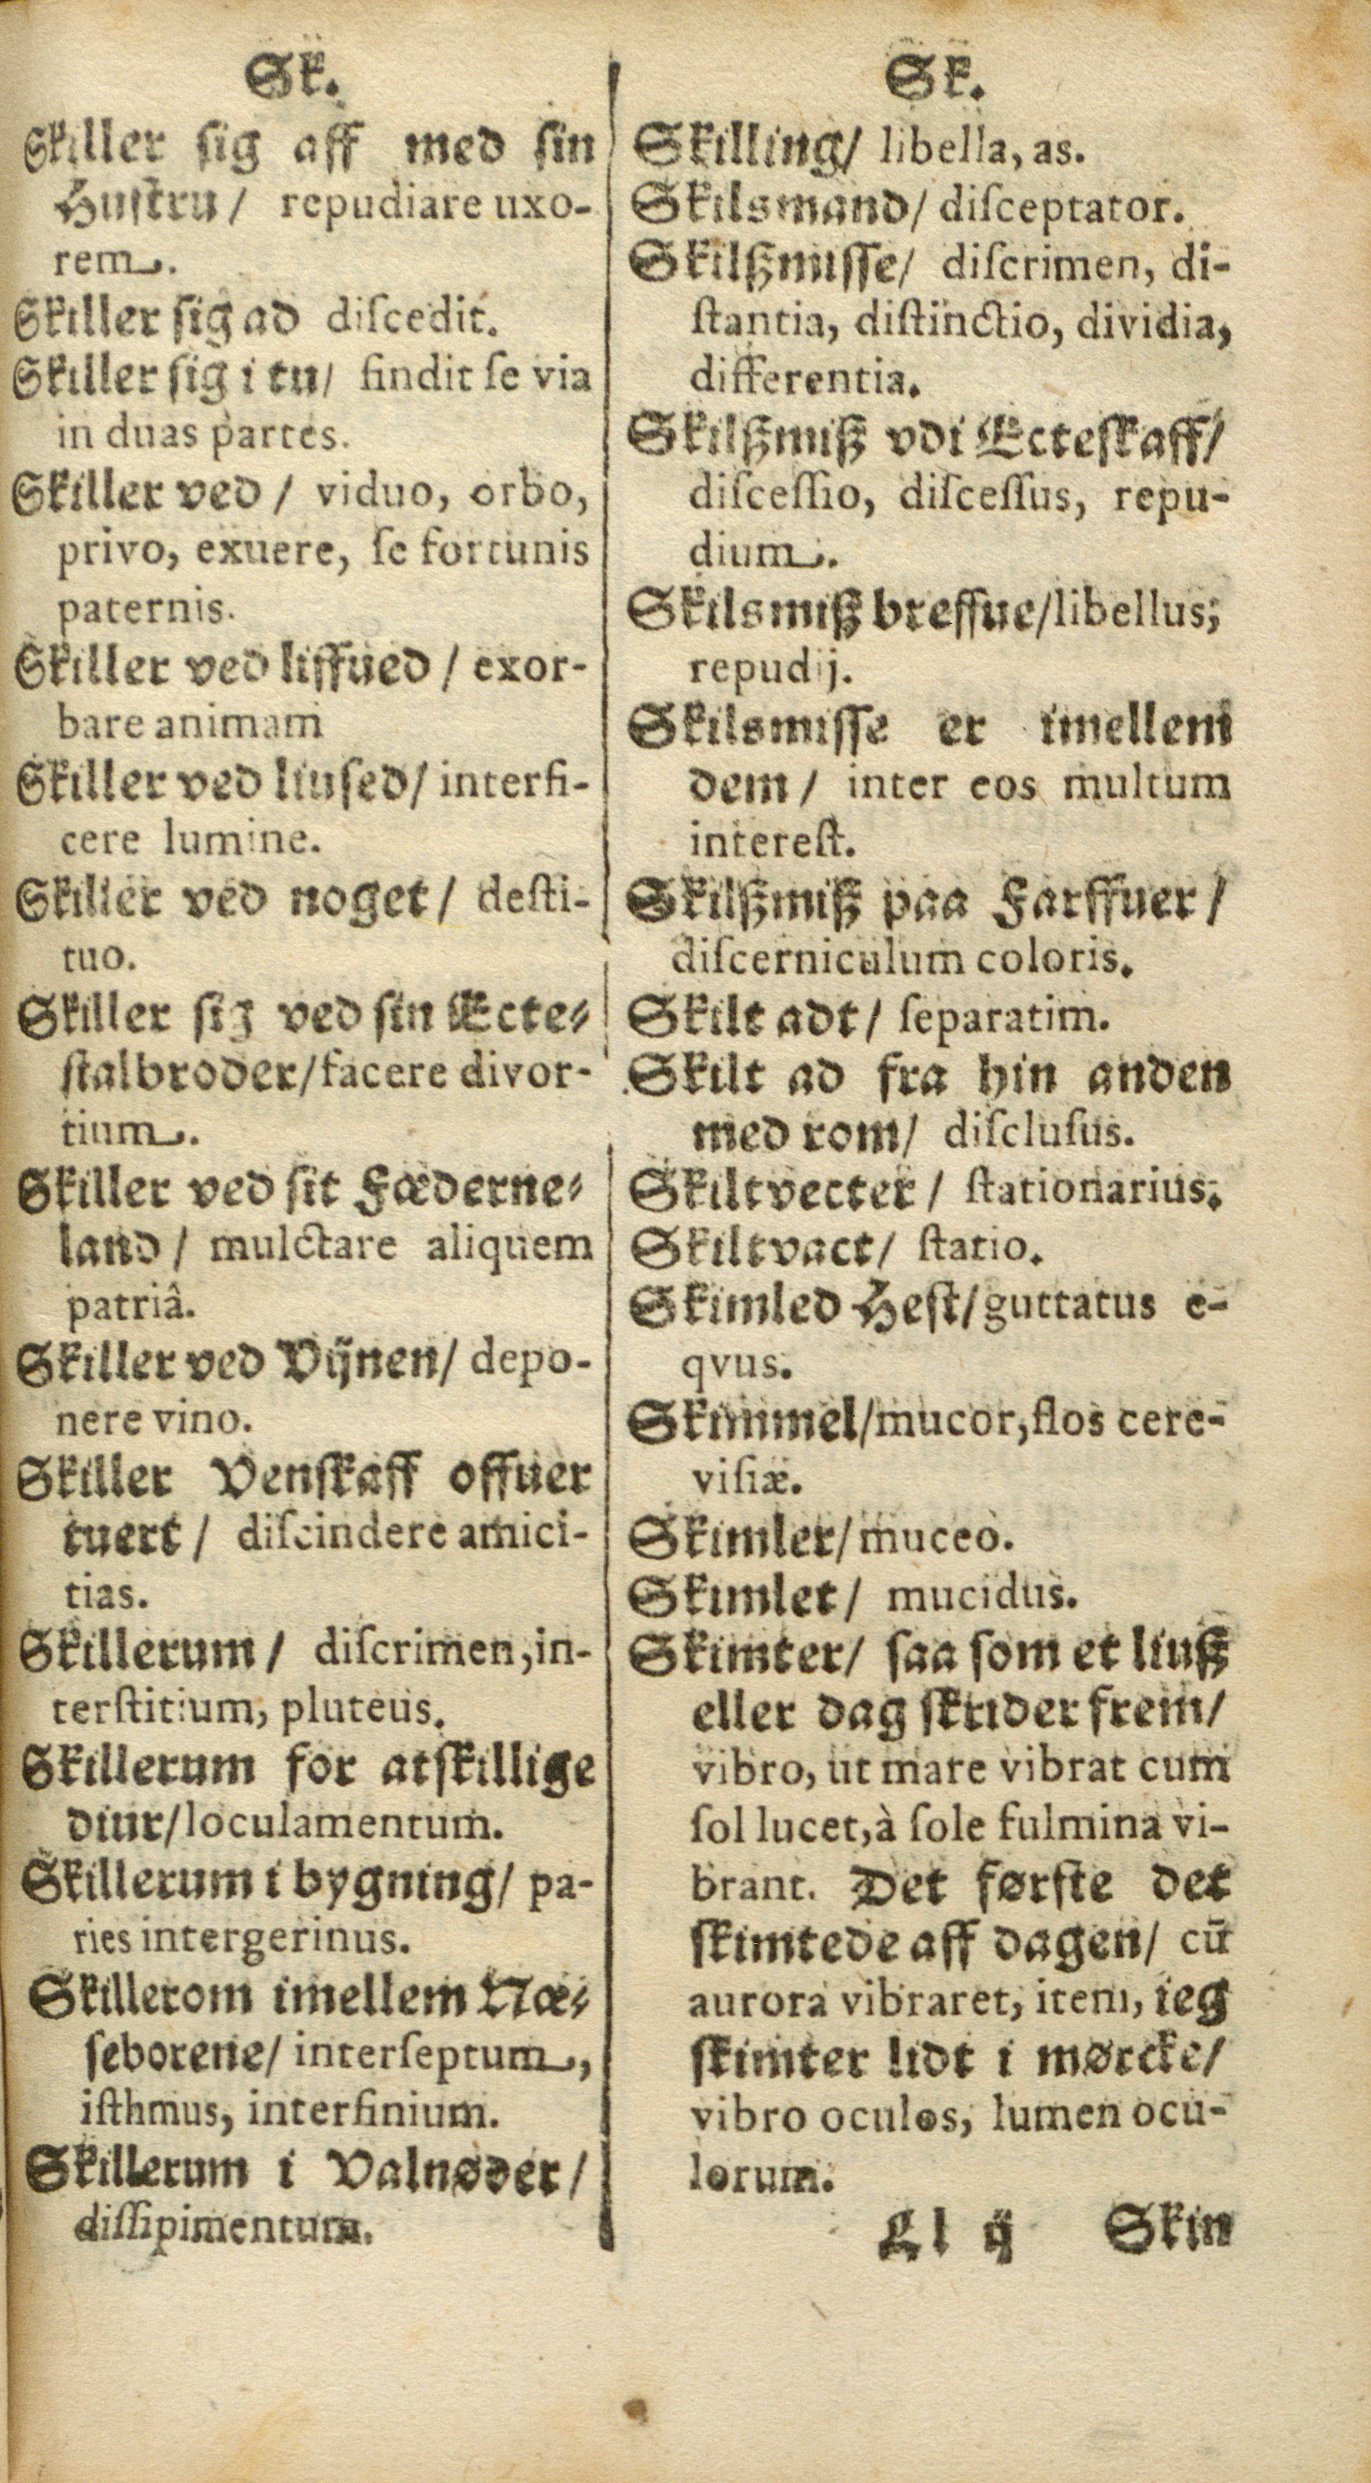 Sk.
Skiller sig aff med sin
Hustru / repudiare uxo-
rem.
Skiller sig ad diſcedit.
Skiller sig i tu / findit ſe via
in duas partes.
Skiller ved / viduo, orbo,
privo, exuere, ſe fortunis
paternis.
Skiller ved liffued / exor-
bare animam
Skiller ved liuſed / interfi-
cere lumine.
Skiller ved noget / deſti-
tuo.
Skiller ſig ved ſin Ecte-
ſtalbroder / facere divor-
tium.
Skiller ved ſit Fæderne-
land / mulctare aliquem
patriâ.
Skiller ved Vijnen / depo-
nere vino.
Skiller Venſkaff offuer
tuert / diſcindere amici-
tias.
Skillerum / diſcrimen, in-
terſtitium, pluteus.
Skillerum for atſkillige
diur / loculamentum.
Skillerum i bygning / pa-
ries intergerinus.
Skillerom imellem Næ-
ſeborene / interſeptum,
iſthmus, interfinium.
Skillerum i Valnøder /
diſſipimentum.
Sk.
Skilling / libella, as.
Skilsmand / diſceptator.
Skilßmiſſe / diſcrimen, di-
ſtantia, diſtinctio, dividia,
differentia.
Skilßmiß vdi Ecteſkaff /
diſceſſio, diſceſſus, repu-
dium.
Skilsmiß breffue / libellus,
repudij.
Skilsmiſſe er imellem
dem / inter eos multum
intereſt.
Skilßmiß paa Farffuer /
diſcerniculum coloris.
Skilt adt / ſeparatim.
Skilt ad fra hin anden
med rom / diſcluſus.
Skiltvecter / ſtationarius.
Skiltvact / ſtatio.
Skimled Heſt / guttatus e-
qvus.
Skimmel / mucor, flos cere-
viſiæ.
Skimler / muceo.
Skimlet / mucidus.
Skimter / ſaa ſom et liuß
eller dag ſkrider frem /
vibro, ut mare vibrat cum
ſol lucet, à ſole fulmina vi-
brant. Det førſte det
ſkimtede aff dagen / cũ
aurora vibraret, item, ieg
ſkimter lidt i mørcke /
vibro oculos, lumen ocu-
lorum.
Ll ij Skin